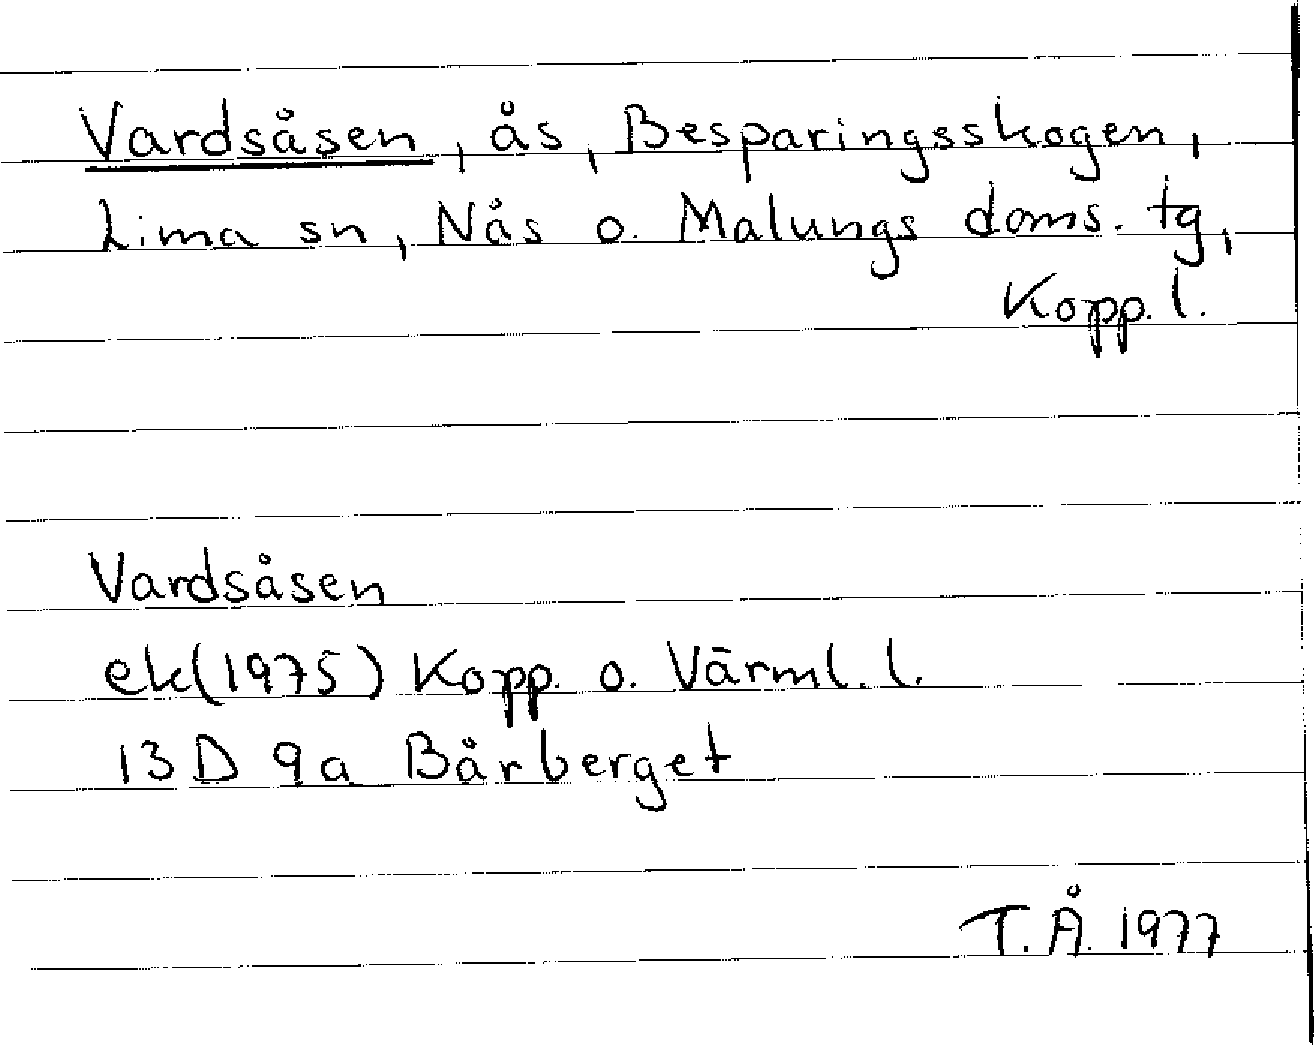 Vardsåsen, ås, Besparingsskogen,
Lima sn, Nås o. Malungs doms. tg,
Kopp. l.
Vardsåsen
ek(1975) Kopp. o. Värml. l.
13D 9a Bårberget
T.Å. 1977